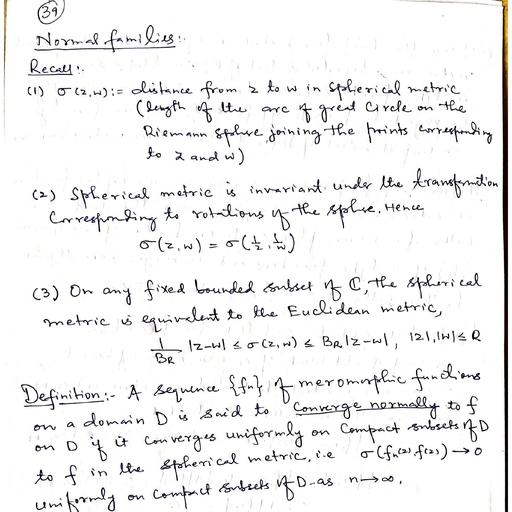 39
Normal families:.
Recall:.
(1) σ(z,w):= distance from z to w in spherical metric
(length of the arc of great circle on the
Riemann sphere joining the points corresponding
to z and w)
(2) Spherical metric is invariant under the transformation
corresponding to rotations of the sphere. Hence
σ(z,w) = σ(1/z, 1/w)
(3) On any fixed bounded subset of ℂ, the spherical
metric is equivalent to the Euclidean metric,
1/B_R |z-w| ≤ σ(z,w) ≤ B_R |z-w|, |z|,|w| ≤ R
Definition:- A sequence {fn} of meromorphic functions
on a domain D is said to converge normally to f
on D if it converges uniformly on compact subsets of D
to f in the spherical metric, i.e σ(fn(z), f(z)) → 0
uniformly on compact subsets of D as n→∞.